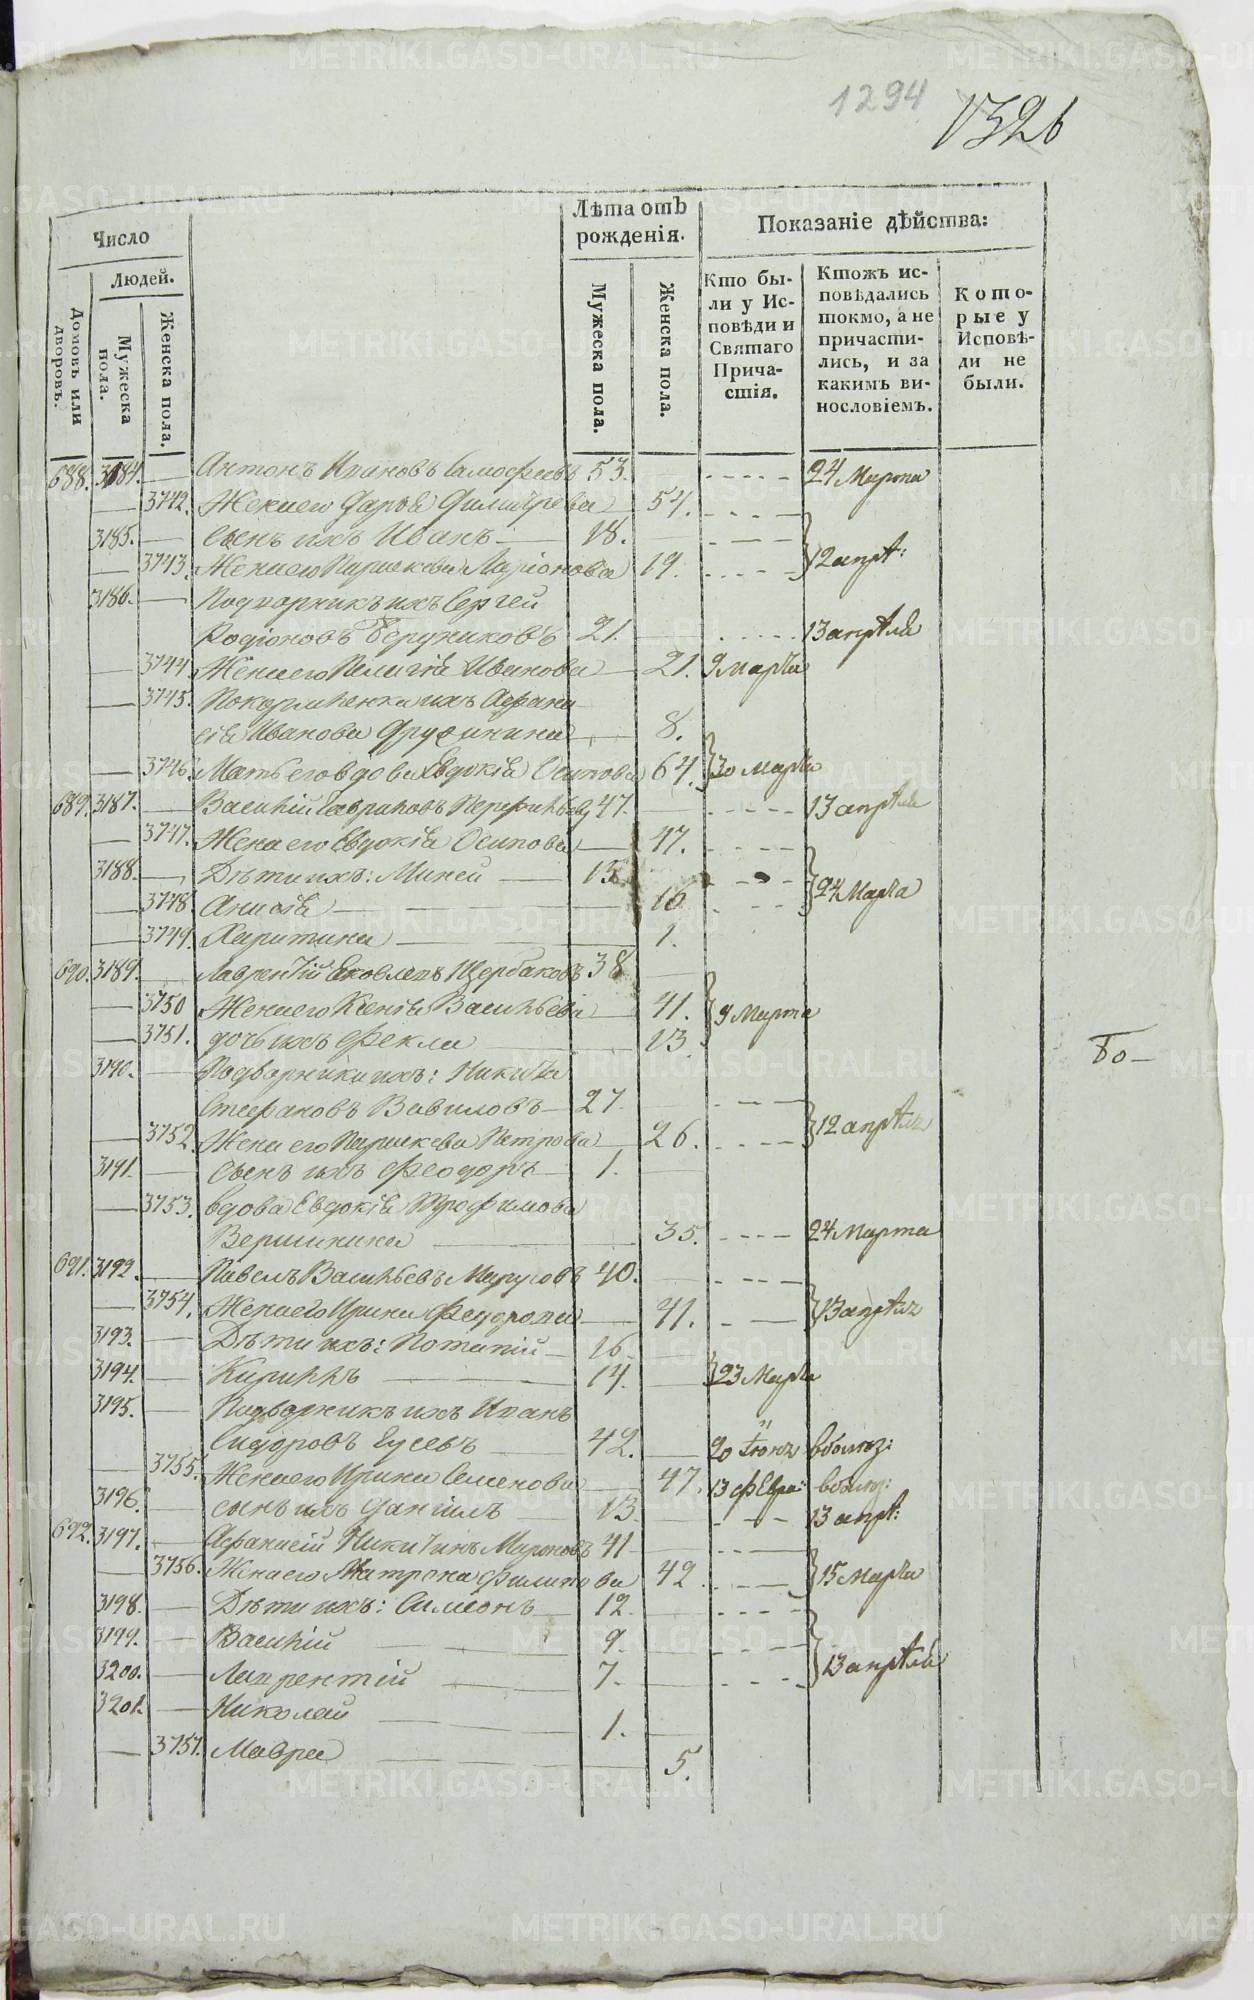 1294
1326
Число
Лѣта отъ рожденія.
Показаніе дѣйства:
Людей.
Домовъ или дворовъ.
Мужеска пола.
Женска пола.
Мужеска пола.
Женска пола.
Кто были у Исповѣди и Святаго Причастія.
Ктожъ исповѣдались токмо, а не причастились, и за какимъ винословіемъ.
Которые у Исповѣди не были.
688. 3184. Антонъ Ивановъ 53. 24 Марта
3742. Жена его Дарья Димитрева 54.
3185. Сынъ ихъ Иванъ 18. 12 апрѣ:
3743. Жена его Параскева Ларіонова 19.
3186. Подворникъ ихъ Сергей
Родіоновъ 21. 13 апрѣля
3744 Жена его Пелагія Иванова 21. 9 марта
3745. Покормленка ихъ Афана
сія Иванова 8.
3746. Мать его вдова Евдокія Осипова 64. 30 марта
689. 3187. Василій Гавриловъ 47. 13 апрѣля
3747. Жена его Евдокія Осипова 47.
3188. Дѣти ихъ: Миней 15 24 Марта
3748. Анисія 16
3749. Харитина 1.
690. 3189. Лаврентій Яковлевъ Щербаковъ 38
3750 Жена его Ксенія Васильева 41. 9 Марта
3751. дочь ихъ Фекла 13
3190. Подворники ихъ: Никита
Стефановъ Вавиловъ 27.
3752. Жена его Параскева Петрова 26. 12 апрѣля
3191. Сынъ ихъ Феодоръ 1.
3753. вдова Евдокія Трофимова
Вершинина 35. 24 Марта
691. 3192. Павелъ Васильевъ 40.
3754. Жена его Ирина Феодорова 41. 13 апрѣля
3193. Дѣти ихъ: Потапій 16
3194. Кирилъ 14. 23 Марта
3195. Подворникъ ихъ Иванъ
Сидоровъ Гусевъ 42. 20 Іюня
3755. Жена его Ирина Семенова 47. 13 Февра:
3196. сынъ ихъ Даніилъ 13 13 апрѣ:
692. 3197. Афанасій Никитинъ 41
3756. Жена его Матрона Филипова 42 15 Марта
3198. Дѣти ихъ: Симеонъ 12
3199. Василій 9.
3200. Лаврентій 7. 13 апрѣля
3201. Николай 1.
3757. Мавра 5.